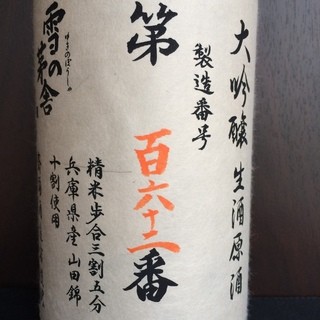 大吟醸 生酒原酒
製造番号
第 百六十二番
精米歩合三割五分
兵庫県産 山田錦
十割使用
ゆきのぼうしゃ
雪の茅舎